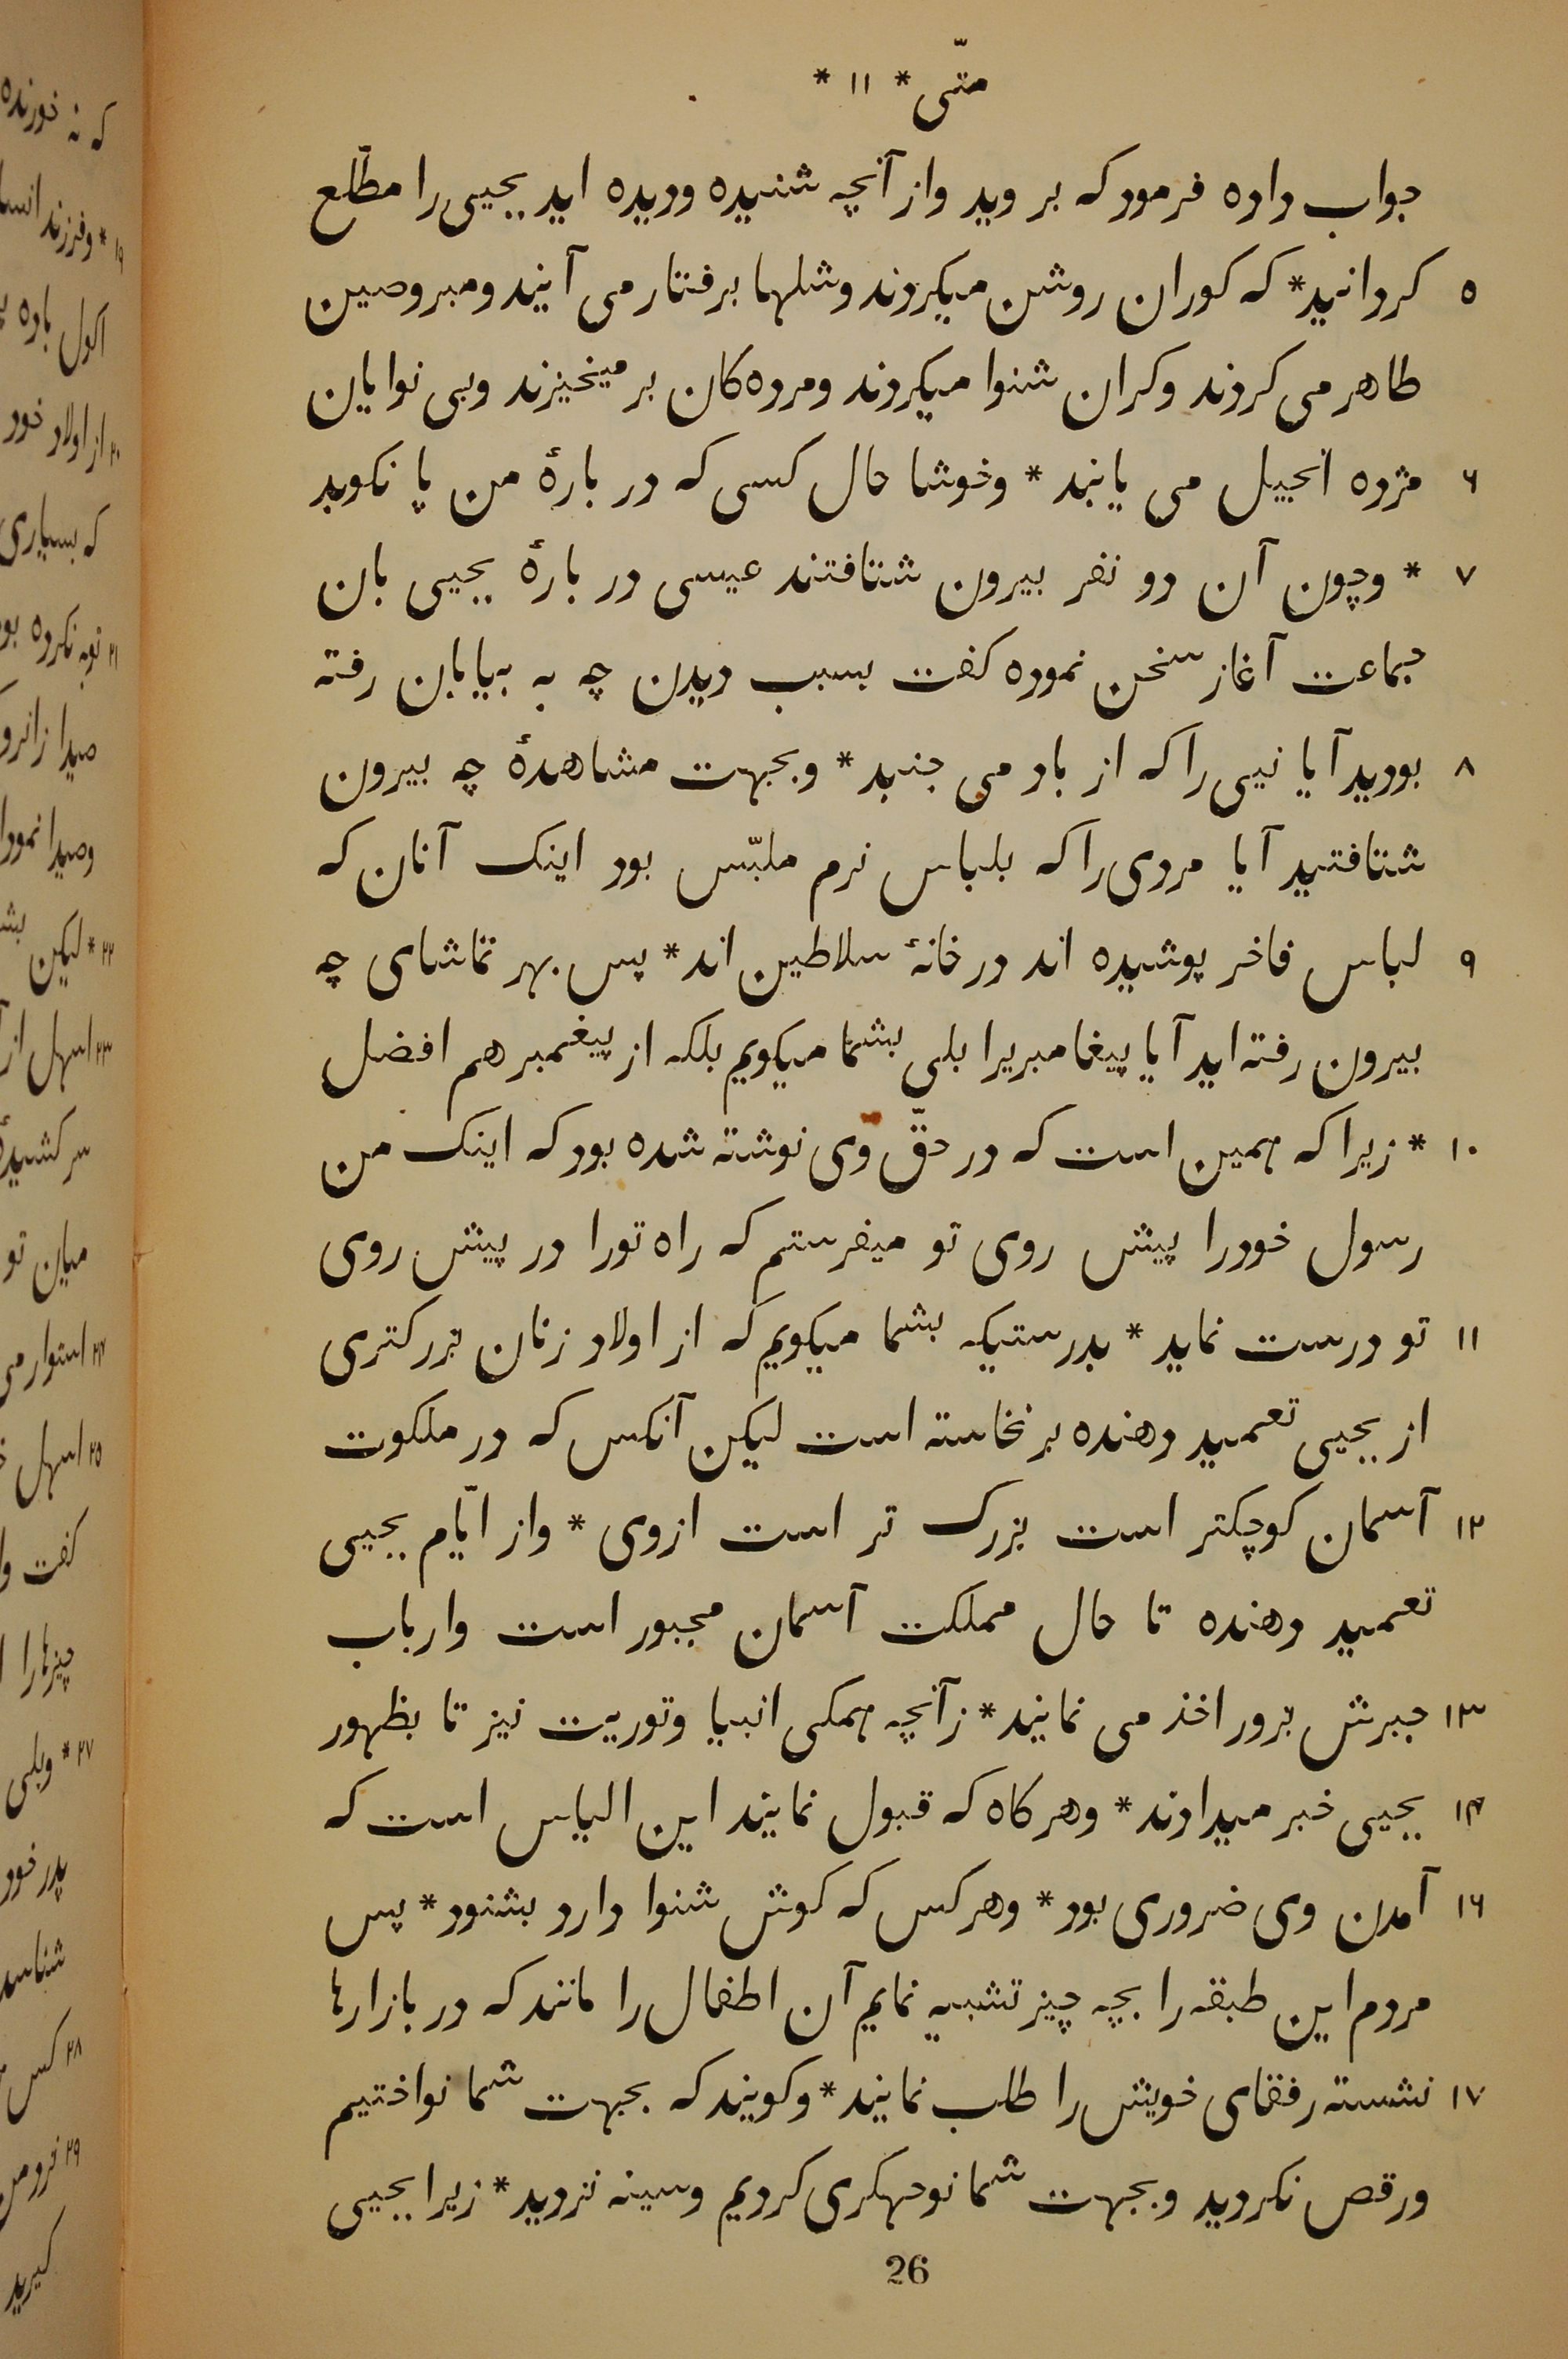 متّی * ۱۱ *
جواب داده فرمود که بروید واز آنچه شنیده ودیده اید یحیی را مطّلع
۵ کردانید* که کوران روشن میکردند وشلها برفتار می آیند ومبروصین
طاهر می کردند وکران شنوا میکردند ومرده کان بر میخیزند وبی نوایان
۶ مژده انجیل می یابند * وخوشا حال کسی که در بارهٔ من پا نکوبد
۷ * وچون آن دو نفر بیرون شتافتند عیسی در بارهٔ یحیی بان
جماعت آغاز سخن نموده کفت بسبب دیدن چه به بیابان رفته
۸ بودید آیا نیی را که از باد می جنبد * وبجهت مشاهدهٔ چه بیرون
شتافتید آیا مردی را که بلباس نرم ملبّس بود اینک آنان که
۹ لباس فاخر پوشیده اند در خانهٔ سلاطین اند* پس بهر تماشای چه
بیرون رفته اید آیا پیغامبریرا بلی بشما میکویم بلکه از پیغمبر هم افضل
۱۰ * زیرا که همین است که در حقّ وی نوشته شده بود که اینک من
رسول خودرا پیش روی تو میفرستم که راه تورا در پیش روی
۱۱ تو درست نماید * بدرستیکه بشما میکویم که از اولاد زنان بزرکتری
از یحیی تعمید دهنده برنخاسته است لیکن آنکس که در ملکوت
۱۲ آسمان کوچکتر است بزرک تر است ازوی * واز ایّام یحیی
تعمید دهنده تا حال مملکت آسمان مجبور است وارباب
۱۳ جبرش بزور اخذ می نمایند* زآنچه همکی انبیا وتوریت نیز تا بظهور
۱۴ یحیی خبر میدادند * وهرکاه که قبول نمایند این الیاس است که
۱۶ آمدن وی ضروری بود* وهرکس که کوش شنوا دارد بشنود* پس
مردم این طبقه را بچه چیز تشبیه نمایم آن اطفال را مانند که در بازارها
۱۷ نشسته رفقای خویش را طلب نمایند* وکویند که بجهت شما نواختیم
ورقص نکردید وبجهت شما نوحهکری کردیم وسینه نزدید* زیرا یحیی
26